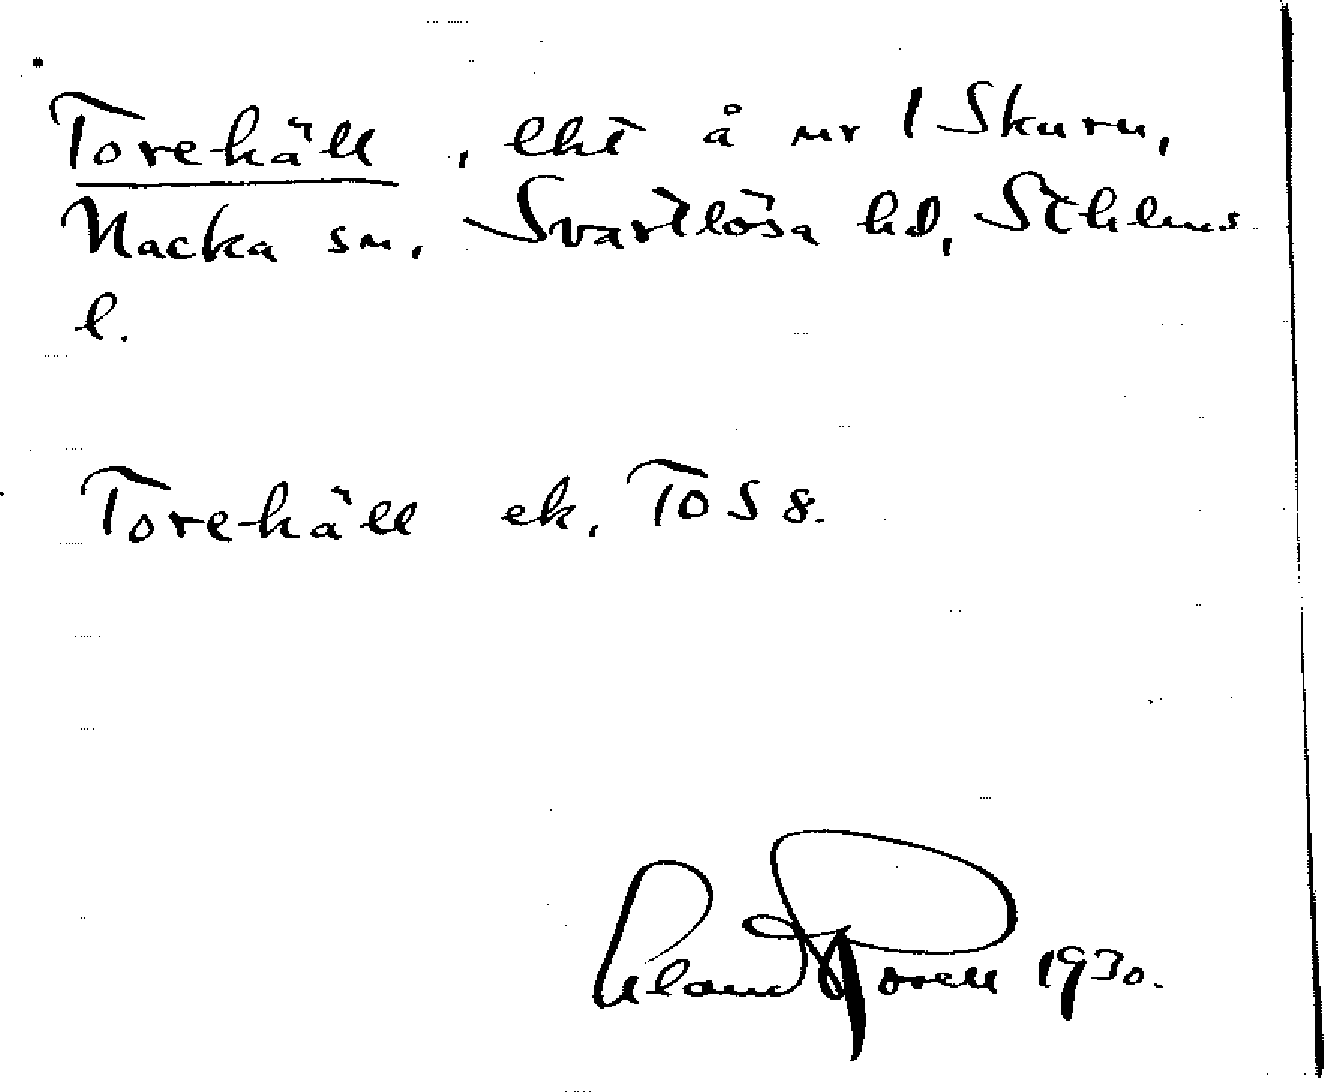 Torehäll, lht å nr 1 Skuru,
Nacka sn. Svartlösa hd, Sthlms
l.
Torehäll ek. TOS 8.
1930.